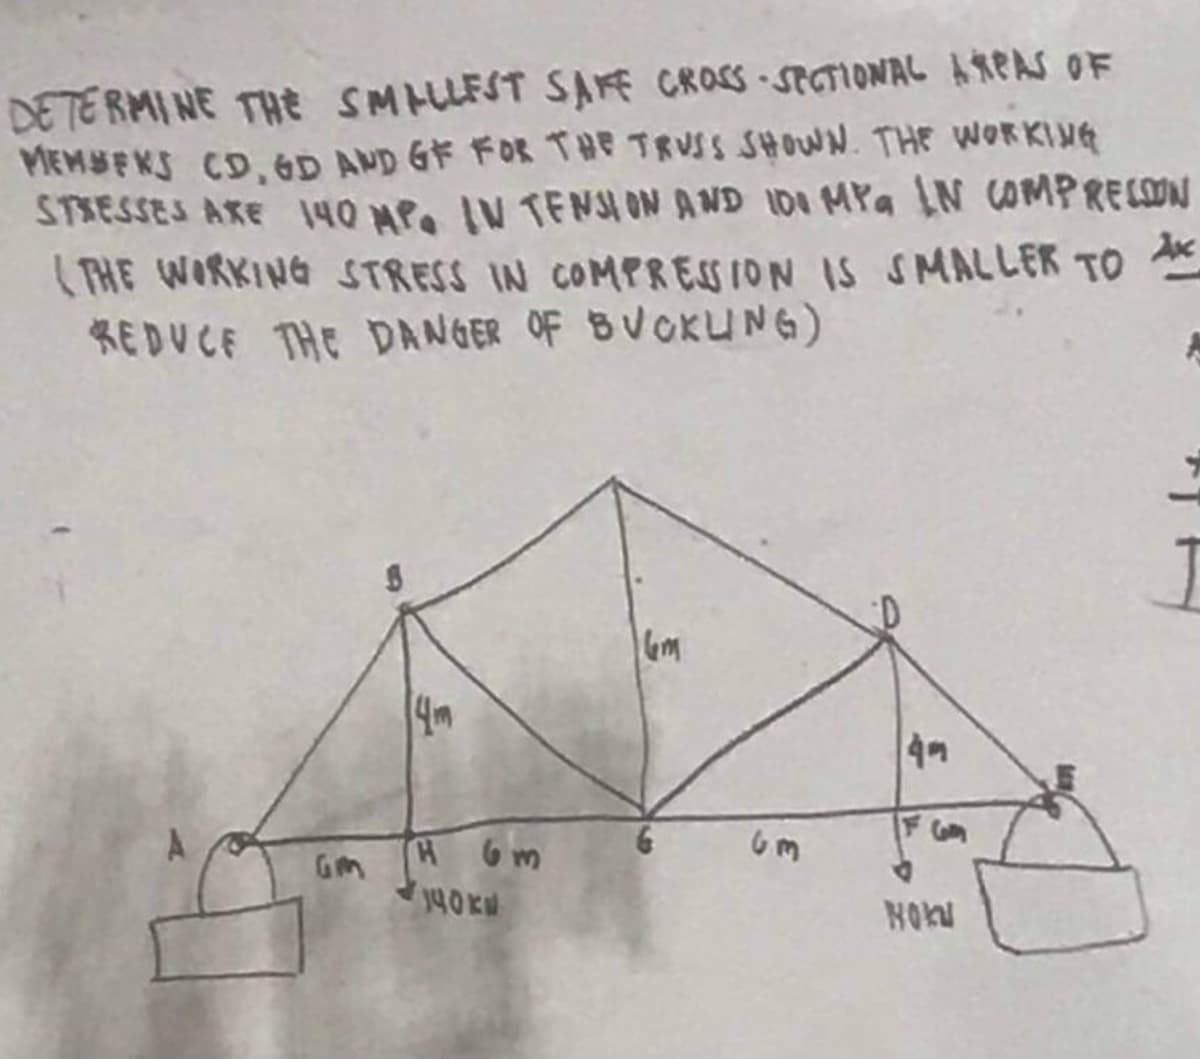 DETERMINE THE SMALLEST SAFE CROSS-SECTIONAL AREAS OF
MEMBERS CD, GD AND GF FOR THE TRUSS SHOWN. THE WORKING
STRESSES ARE 140 MPa IN TENSION AND 100 MPa IN COMPRESSION
(THE WORKING STRESS IN COMPRESSION IS SMALLER TO
REDUCE THE DANGER OF BUCKLING)
B
D
6m
4m
4m
E
A
6m
H
6m
G
6m
F
6m
140KN